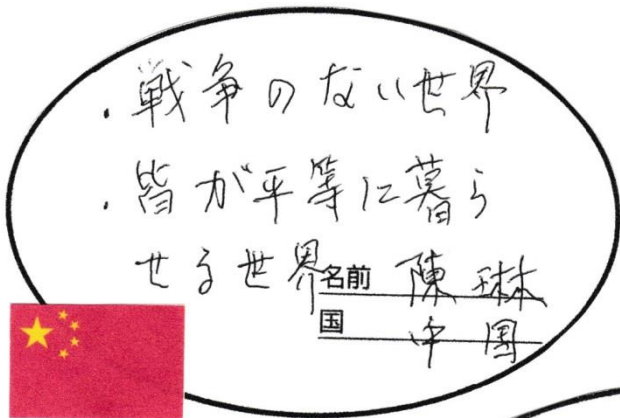 ・戦争のない世界
・皆が平等に暮ら
せる世界
名前 陳琳
国 中国